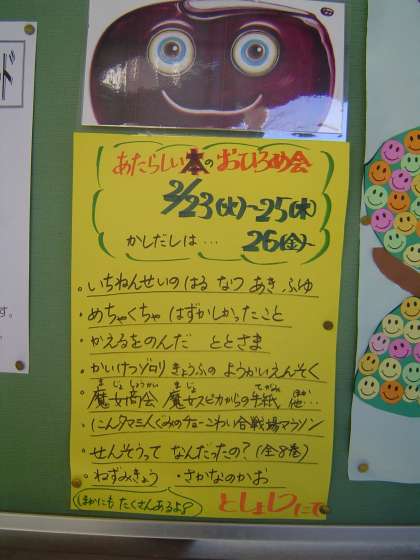 あたらしい本のおひろめ会
2/23(火)~25(木)
かしだしは… 26(金)~
。いちねんせいの はる なつ あき ふゆ
・めちゃくちゃ はずかしかったこと
・かえるをのんだ ととさま
・かいけつゾロリ きょうふの ようかいえんそく
・魔女商会 魔女スピカからの手紙 他…
まじょしょうかい まじょ てがみ ほか
・にんタマ三人ぐみのチョーこわい合戦場マラソン
・せんそうって なんだったの?(全8巻)
・ねずみきょう ・さかなのかお
ほかにも たくさんあるよ♪
としょしつにて
す。